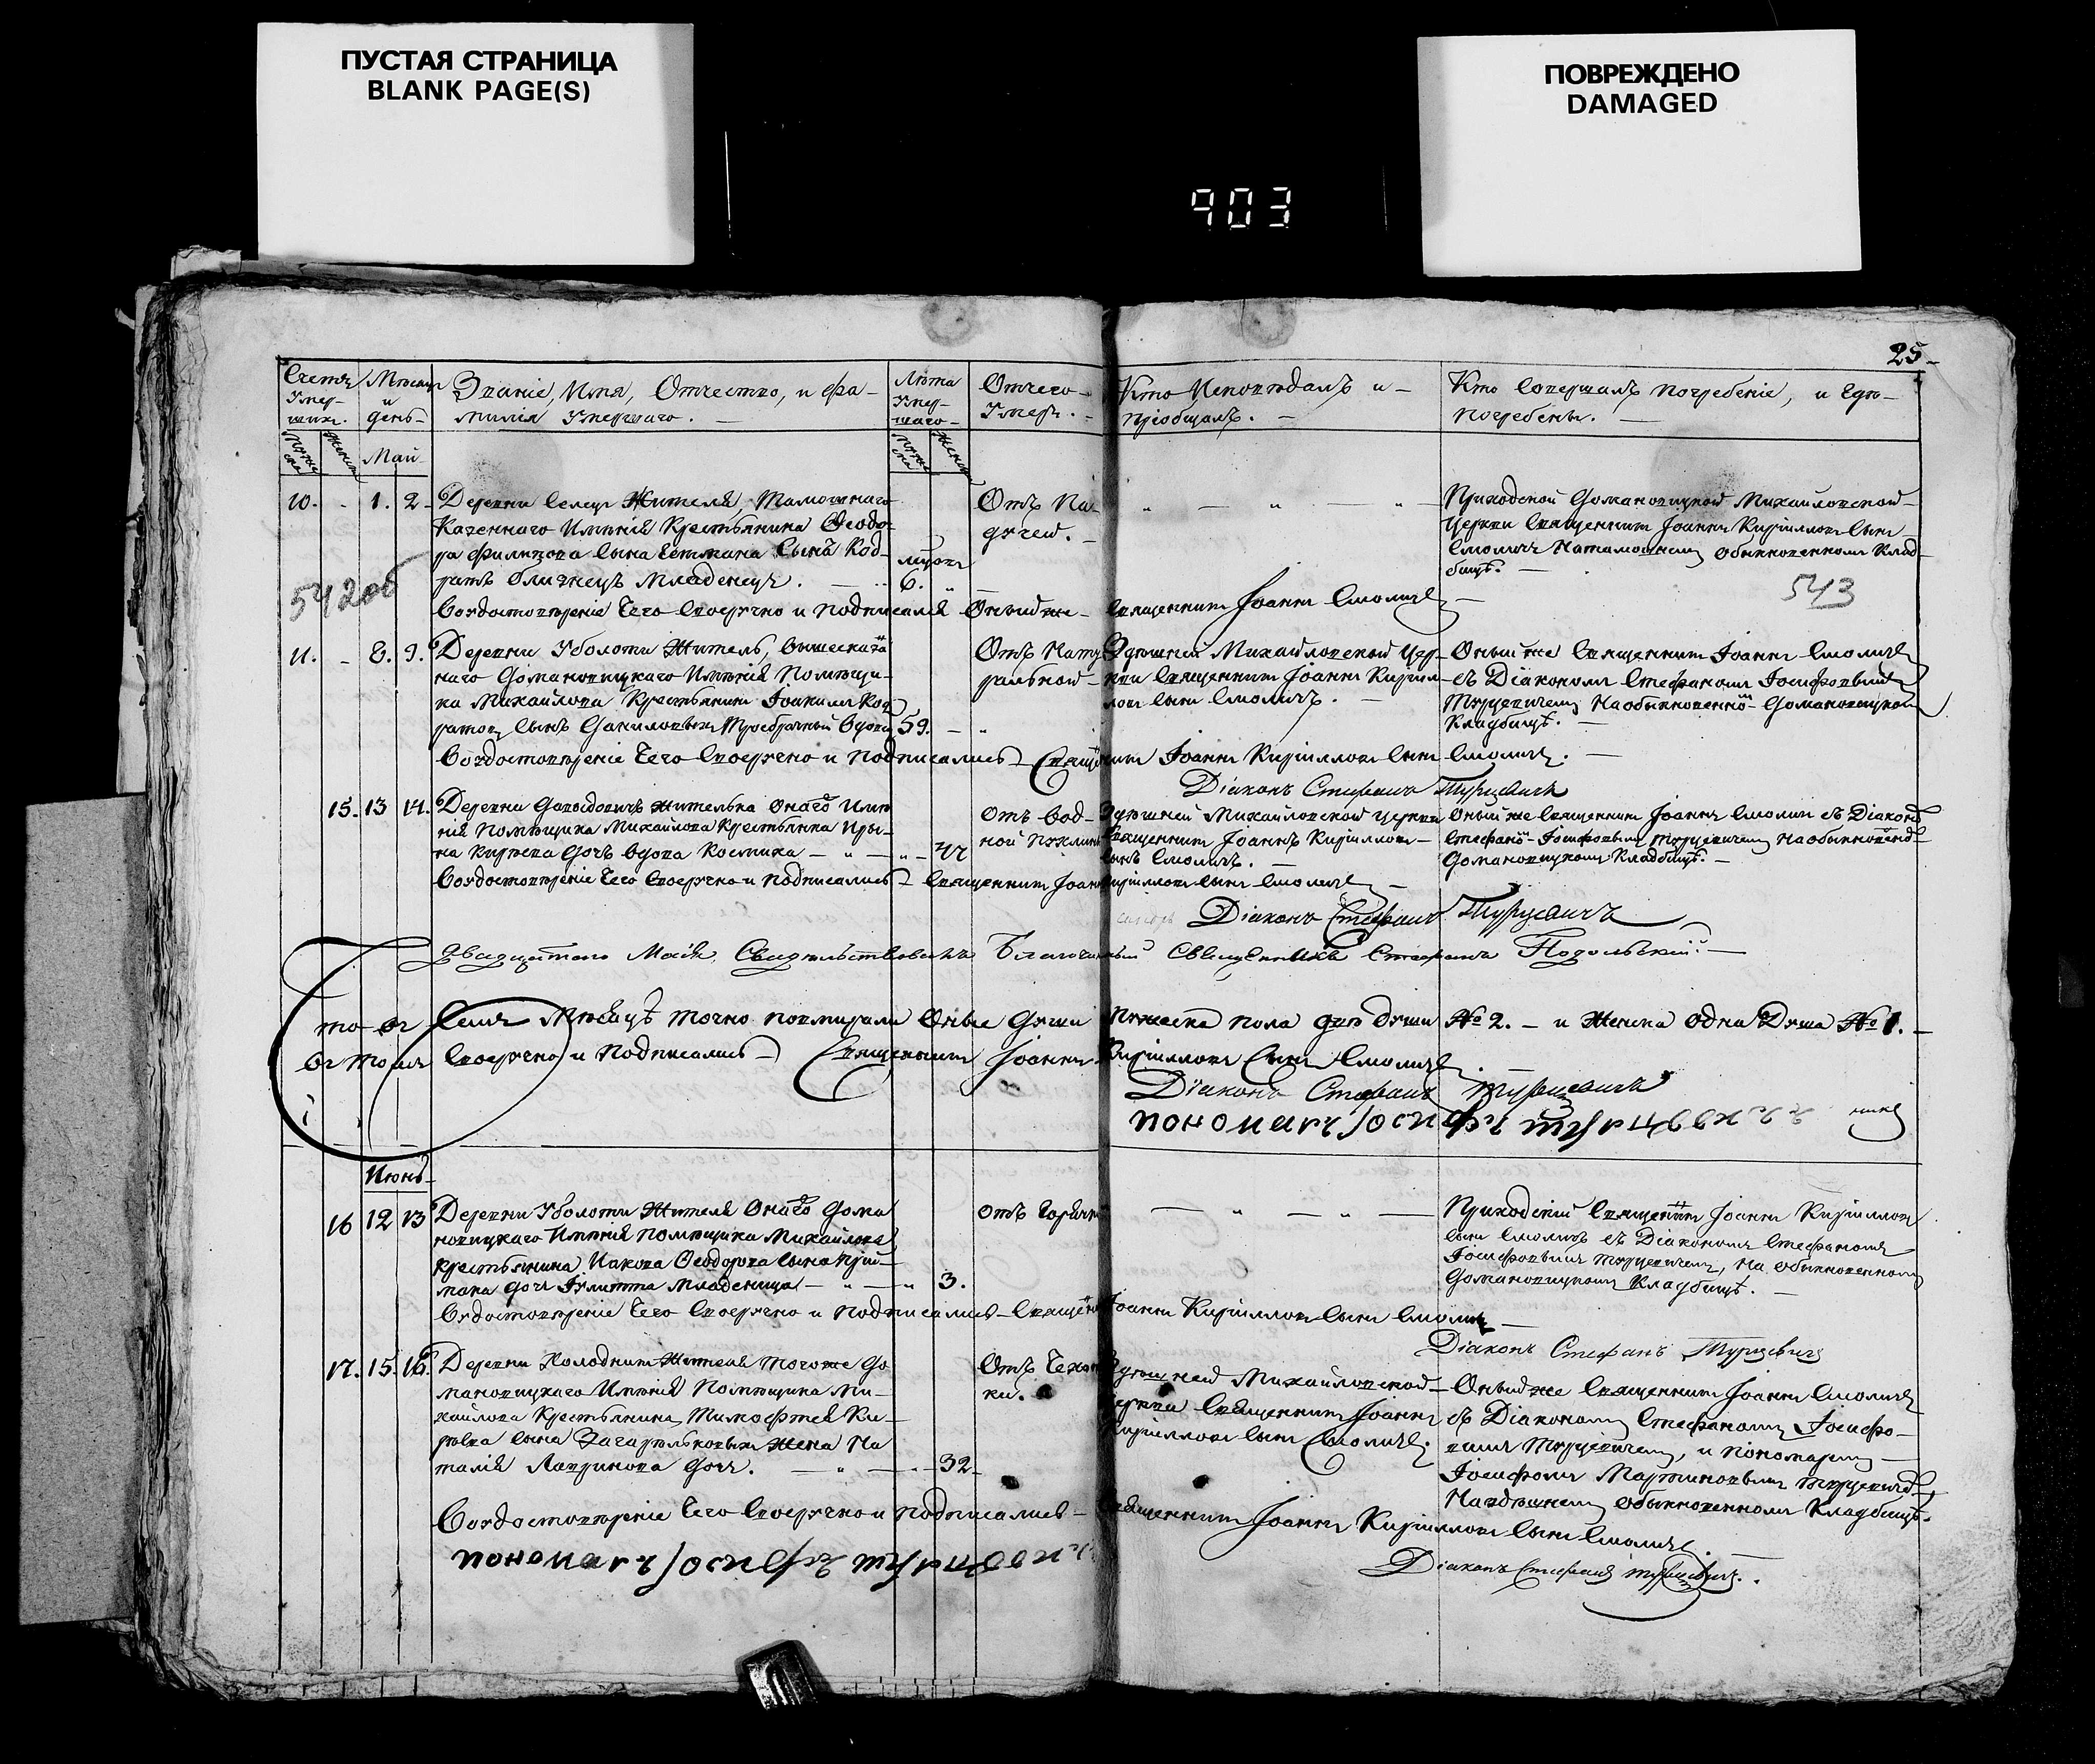 ПУСТАЯ СТРАНИЦА
BLANK PAGE(S)
ПОВРЕЖДЕНО
DAMAGED
903
25
Счетъ Умер-ших.
Мѣсяцъ и день
Званіе, Имя, Отчество, и фа-
милія Умершаго.
Лѣта Умер-шаго
Отчего Умеръ.
Кто Исповѣдалъ и
пріобщалъ.
Кто Совершалъ погребеніе, и Гдѣ
погребены.
Май
10. 1. 2.
Деревни Селецъ Жителя, Тамошнаго
Казеннаго Имѣнія Крестьянина Ѳеодо-
ра Филипова Сына Гетмана Сынъ Код-
ратъ близнецъ младенецъ.
6.
Отъ Па-
дучей.
Приходской Домановицкой Михайловской
Церкви Священникъ Іоаннъ Кирилловъ Сынъ
Смоличъ На тамошнемъ обыкновенномъ Клад-
бищѣ.
542об
543
Въ удостовѣреніе Чего Своеручно и подписался Оный же Священникъ Іоаннъ Смоличъ
11. 8. 9.
Деревни Уболоти Житель, вышесказа
наго Домановицкаго Имѣнія Помѣщи-
ка Михайлова Крестьянинъ Іоакимъ Код
ратовъ Сынъ Даниловъ Троебрачный вдовец
59.
Отъ Нату
ральной
Здѣшней Михайловской Цер-
кви Священникъ Іоаннъ Кирил-
ловъ Сынъ Смоличъ.
Оный же Священникъ Іоаннъ Смоличъ
съ Діакономъ Стефаномъ Іосифовымъ
Турцевичемъ На обыкновенномъ Домановицкомъ
Кладбищѣ.
Въ удостовѣреніе Чего Своеручно и подписались Священникъ Іоаннъ Кирилловъ Сынъ Смоличъ.
Діаконъ Стефанъ Турцевичъ
15. 13 14.
Деревни Давыдовичъ жителька онаго Имѣ
нія Помѣщика Михайлова Крестьянка Ири-
на Кирѣева Дочь вдова
Отъ вод-
ной пухлины
Здѣшней Михайловской Церкви
Священникъ Іоаннъ Кирилловъ
Сынъ Смоличъ.
Оный же Священникъ Іоаннъ Смоличъ съ Діакономъ
Стефаномъ Іосифовымъ Турцевичемъ На обыкновенномъ
Домановицкомъ Кладбищѣ.
Въ удостовѣреніе Чего Своеручно и подписались Священникъ Іоаннъ Кирилловъ Сынъ Смоличъ
Діаконъ Стефанъ Турцевичъ
Двадцатаго Маія Свидѣтельствовалъ Благочинный Священникъ Стефанъ Подольскій.
Что въ Семъ Мѣсяцѣ точно повмирали Оные Души Мужеска пола двѣ души № 2. и Женска одна Душа № 1.
въ томъ Своеручно и Подписались Священникъ Іоаннъ Кирилловъ Сынъ Смоличъ
Діаконъ Стефанъ Турцевичъ
пономарь Іосифъ Турцевичъ
Июнь
16 12 13
Деревни Уболоти Жителя Онаго Дома
новицкаго Имѣнія помѣщика Михайлова
крестьянина Иакова Ѳеодорова Сына
Дочь Іулитта младеница
3.
Отъ Горячки
Приходскій Священникъ Іоаннъ Кирилловъ
Сынъ Смоличъ съ Діакономъ Стефаномъ
Іосифовымъ Турцевичемъ, На обыкновенномъ
Домановицкомъ Кладбищѣ.
Въ удостовѣреніе Чего Своеручно и подписались Священникъ Іоаннъ Кирилловъ Сынъ Смоличъ
Діаконъ Стефанъ Турцевичъ
17. 15. 16.
Деревни Холодникъ Жителя тогоже До
мановицкаго Имѣнія Помѣщика Ми-
хайлова Крестьянина Тимоѳтея Ки-
рѣева Сына жена На
талія Лавринова Дочь.
32
Отъ Чехот
ки.
Здѣшней Михайловской
Церкви Священникъ Іоаннъ
Кирилловъ Сынъ Смоличъ.
Оный же Священникъ Іоаннъ Смоличъ
съ Діакономъ Стефаномъ Іосифо-
вымъ Турцевичемъ, и пономаремъ
Іосифомъ Мартиновымъ Турцевичемъ
На здѣшнемъ обыкновенномъ Кладбищѣ.
Въ удостовѣреніе Чего Своеручно и подписались Священникъ Іоаннъ Кирилловъ Сынъ Смоличъ.
пономарь Іосифъ Турцевичъ
Діаконъ Стефанъ Турцевичъ.